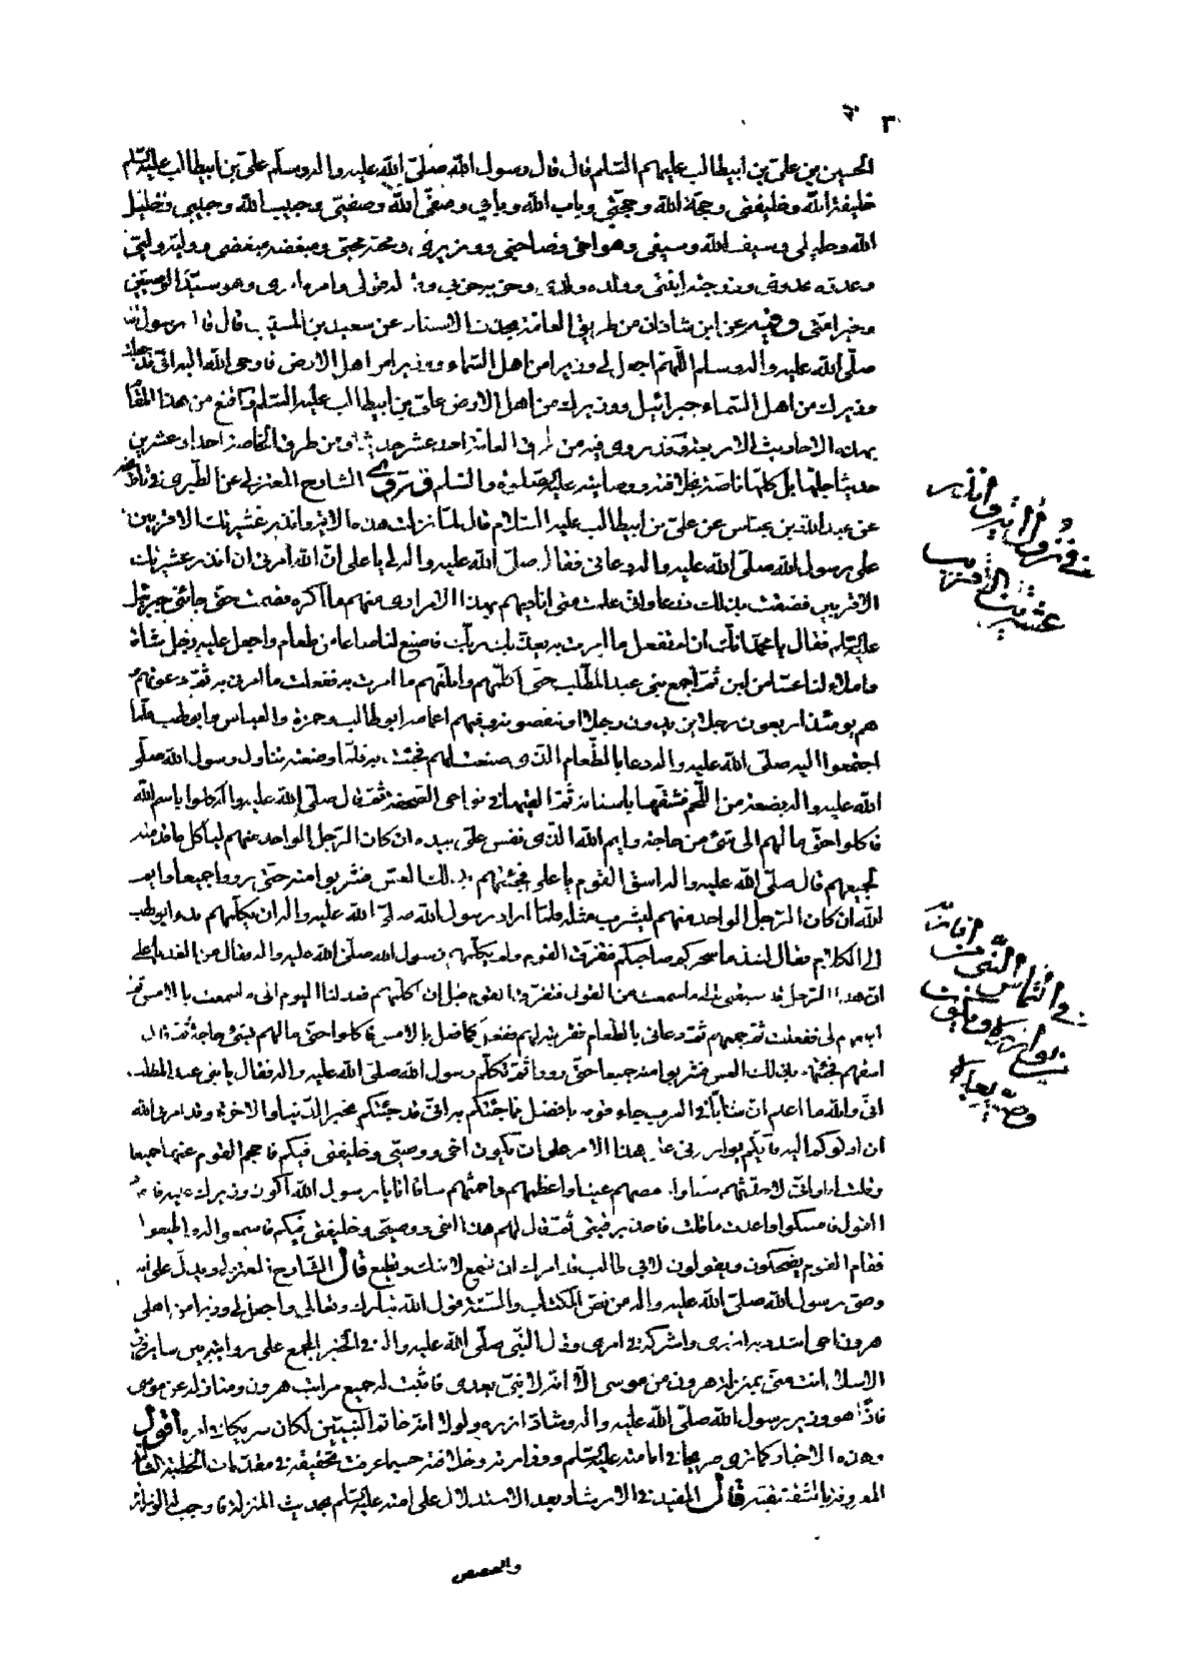 ٣
الحسين بن علي بن ابيطالب عليهم السلم قال قال رسول الله صلى الله عليه واله وسلم علي بن ابيطالب عليه السلم
خليفة الله وخليفتي وحجة الله وحجتي وباب الله وبابي وصفي الله وصفيي وحبيب الله وحبيبي وخليل
الله وخليلي وسيف الله وسيفي وهو اخي وصاحبي ووزيري ومحبه محبي ومبغضه مبغضي ووليه وليي
وعدوه عدوي وزوجته ابنتي وولده ولدي وحزبه حزبي وقوله قولي وامره امري وهو سيد الوصيين
وخير امتي وفيه عن ابن شاذان من طريق العامة بحذف الاسناد عن سعيد بن المسيب قال قال رسول الله
صلى الله عليه واله وسلم اللهم اجعل لي وزيرا من اهل السماء ووزيرا من اهل الارض فاوحى الله اليه اني قد جعلت
وزيرك من اهل السماء جبرائيل ووزيرك من اهل الارض علي بن ابيطالب عليه السلم ولنقنع من هذا المقام
بهذه الاحاديث الاربعة وقد روى فيه من طريق العامة احد عشر حديثا ومن طريق الخاصة احدا وعشرين
حديثا جلها بل كلها ناصة بخلافته ووصايته عليه الصلوة والسلم وروى الشارح المعتزلي عن الطبري في تاريخه
عن عبد الله بن عباس عن علي بن ابيطالب عليه السلام قال لما نزلت هذه الاية وانذر عشيرتك الاقربين
على رسول الله صلى الله عليه واله دعاني فقال صلى الله عليه واله لي يا علي ان الله امرني ان انذر عشيرتك
الاقربين فضقت بذلك ذرعا وعلمت متى اناديهم بهذا الامر ارى منهم ما اكره فصمت حتى جائني جبرئيل
عليه السلم فقال يا محمد انك ان لم تفعل ما امرت به يعذبك ربك فاصنع لنا صاعا من طعام واجعل عليه رجل شاة
واملاء لنا عسا من لبن ثم اجمع بني عبد المطلب حتى اكلمهم وابلغهم ما امرت به ففعلت ما امرني به ثم دعوتهم
هم يومئذ اربعون رجلا يزيدون رجلا او ينقصونه وفيهم اعمامه ابو طالب وحمزة والعباس وابو لهب فلما
اجتمعوا اليه صلى الله عليه واله دعا بالطعام الذي صنعت لهم فجئت به فلما وضعته تناول رسول الله صلى
الله عليه واله بضعة من اللحم فشقها باسنانه ثم القيها في نواحي الصحفة ثم قال صلى الله عليه واله كلوا باسم الله
فاكلوا حتى ما لهم الى شيء من حاجة وايم الله الذي نفس علي بيده ان كان الرجل الواحد منهم لياكل ما قدمته
لجميعهم قال صلى الله عليه واله اسق القوم يا علي فجئتهم بذلك العس فشربوا منه حتى رووا جميعا وايم
الله ان كان الرجل الواحد منهم ليشرب مثله فلما اراد رسول الله صلى الله عليه واله ان يكلمهم بدره ابو لهب
الى الكلام فقال لشد ما سحركم صاحبكم فتفرق القوم ولم يكلمهم رسول الله صلى الله عليه واله فقال من الغد يا علي
ان هذا الرجل قد سبقني الى ما سمعت من القول فتفرق القوم قبل ان اكلمهم فعد لنا اليوم الى ما صنعت بالامس ثم
اجمعهم لي ففعلت ثم جمعهم ثم دعاني بالطعام فقربته لهم ففعل كما فعل بالامس فاكلوا حتى ما لهم بشيء حاجة ثم قال
اسقهم فجئتهم بذلك العس فشربوا منه جميعا حتى رووا ثم تكلم رسول الله صلى الله عليه واله فقال يا بني عبد المطلب
اني والله ما اعلم ان شابا في العرب جاء قومه بافضل مما جئتكم به اني قد جئتكم بخير الدنيا والاخرة وقد امرني الله
ان ادعوكم اليه فايكم يوازرني على هذا الامر على ان يكون اخي ووصيي وخليفتي فيكم فاحجم القوم عنها جميعا
وقلت انا واني لاحدثهم سنا وارمصهم عينا واعظمهم بطنا واحمشهم ساقا انا يا رسول الله اكون وزيرك عليه فاعاد
القول فامسكوا واعدت ما قلت فاخذ برقبتي ثم قال لهم هذا اخي ووصيي وخليفتي فيكم فاسمعوا له واطيعوا
فقام القوم يضحكون ويقولون لابي طالب قد امرك ان تسمع لابنك وتطيع قال الشارح المعتزلي ويدل على انه
وصي رسول الله صلى الله عليه واله من نص الكتاب والسنة قول الله تبارك وتعالى واجعل لي وزيرا من اهلي
هرون اخي اشدد به ازري واشركه في امري وقول النبي صلى الله عليه واله في الخبر المجمع على روايته بين ساير فرق
الاسلام انت مني بمنزلة هرون من موسى الا انه لا نبي بعدي فاثبت له جميع مراتب هرون ومنازله عن موسى
فاذا هو وزير رسول الله صلى الله عليه واله وشاد ازره ولولا انه خاتم النبيين لكان شريكا في امره اقول
وهذه الاخبار كما ترى صريحة في امامته عليه السلم ووزارته وخلافته حسبما عرفت تحقيقه في مقدمات الخطبة الثالثة
المعروفة بالشقشقية قال المفيد في الارشاد بعد الاستدلال على امامته عليه السلم بحديث المنزلة فاوجب له الوزارة
في نزول اية وانذر
عشيرتك الاقربين
والتخصص